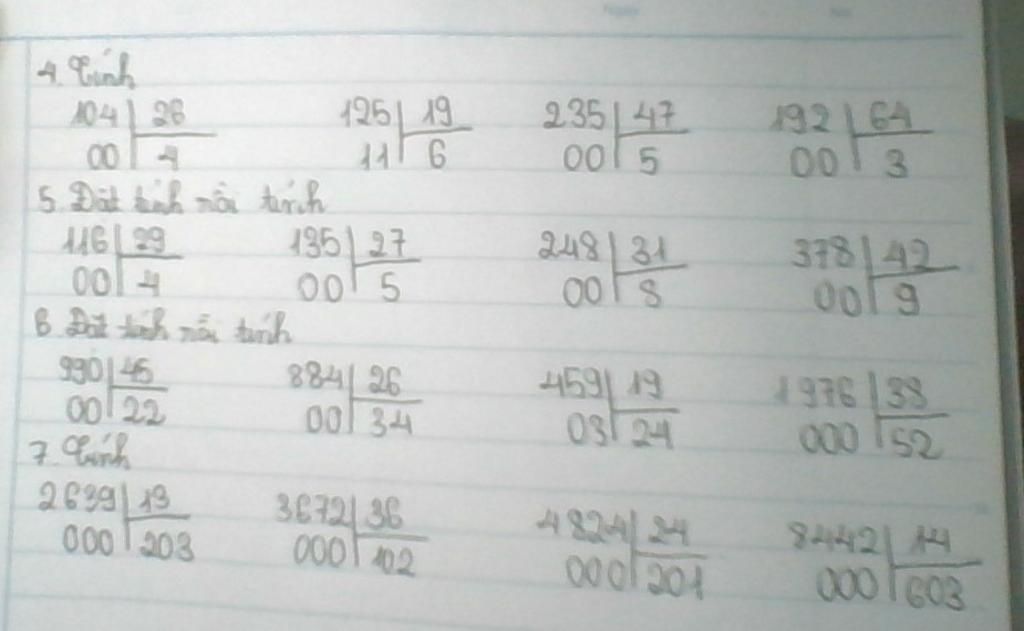 4. Tính
104 26 125 19 235 47 192 64
00 4 11 6 00 5 00 3
5. Đặt tính rồi tính
116 29 135 27 248 31 378 42
00 4 00 5 00 8 00 9
6 Đặt tính rồi tính
990 45 884 26 459 19 1976 38
00 22 00 34 03 24 000 52
7. Tính
2639 13 3672 36 4824 24 8442 14
000 203 000 102 000 201 000 603